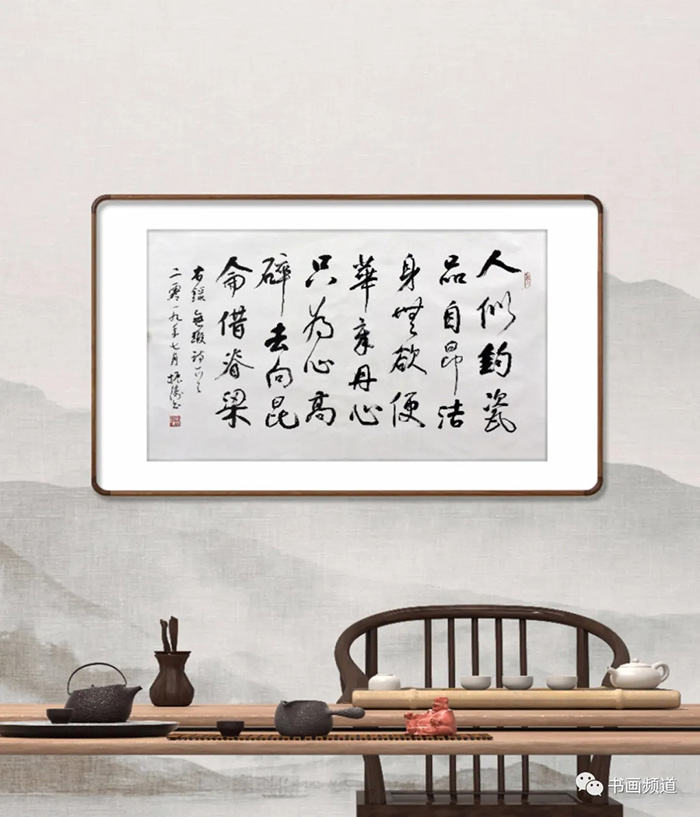 人似鈞瓷
品自昂洁
身無欲便
華章丹心
只为心高
碎去向昆
侖借脊梁
右錄無瑕詩一首
二零一九年七月
书画频道